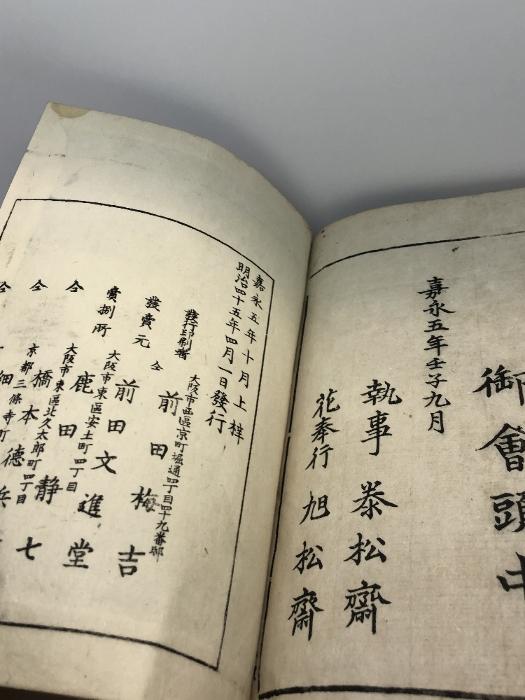 御會頭中
嘉永五年壬子九月
執事 泰松齋
花奉行 旭松齋
嘉永五年十月上梓
明治四十五年四月一日發行
大阪市西區京町堀通四丁目四十九番邸
發行印刷者 前田梅吉
發賣元 仝 前田文進堂
大阪市東區安土町四丁目
賣捌所 鹿田静七
大阪市東區北久太郎町四丁目
仝 橋本德
京都三條寺町
仝 細